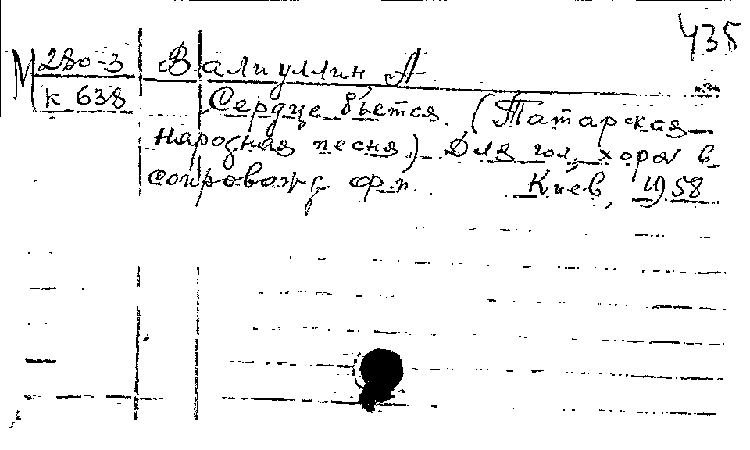 435
М 280-3 Валиуллин А
к 638 Сердце бьется. (Татарская
народная песня.) Для гол, хора в
сопровожд фп. Киев, 1958